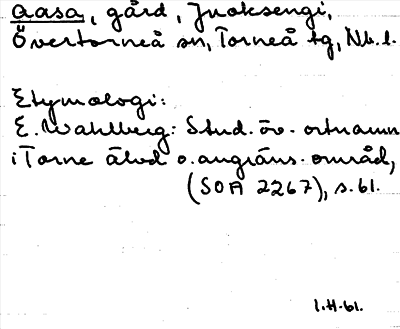 Aasa, gård, Juoksengi,
Övertorneå sn, Torneå tg, Nb.l.
Etymologi:
E. Wahlberg: Stud. öv. ortnamn
i Torne älvd o. angräns. område,
(SOA 2267), s. 61.
1.H.61.